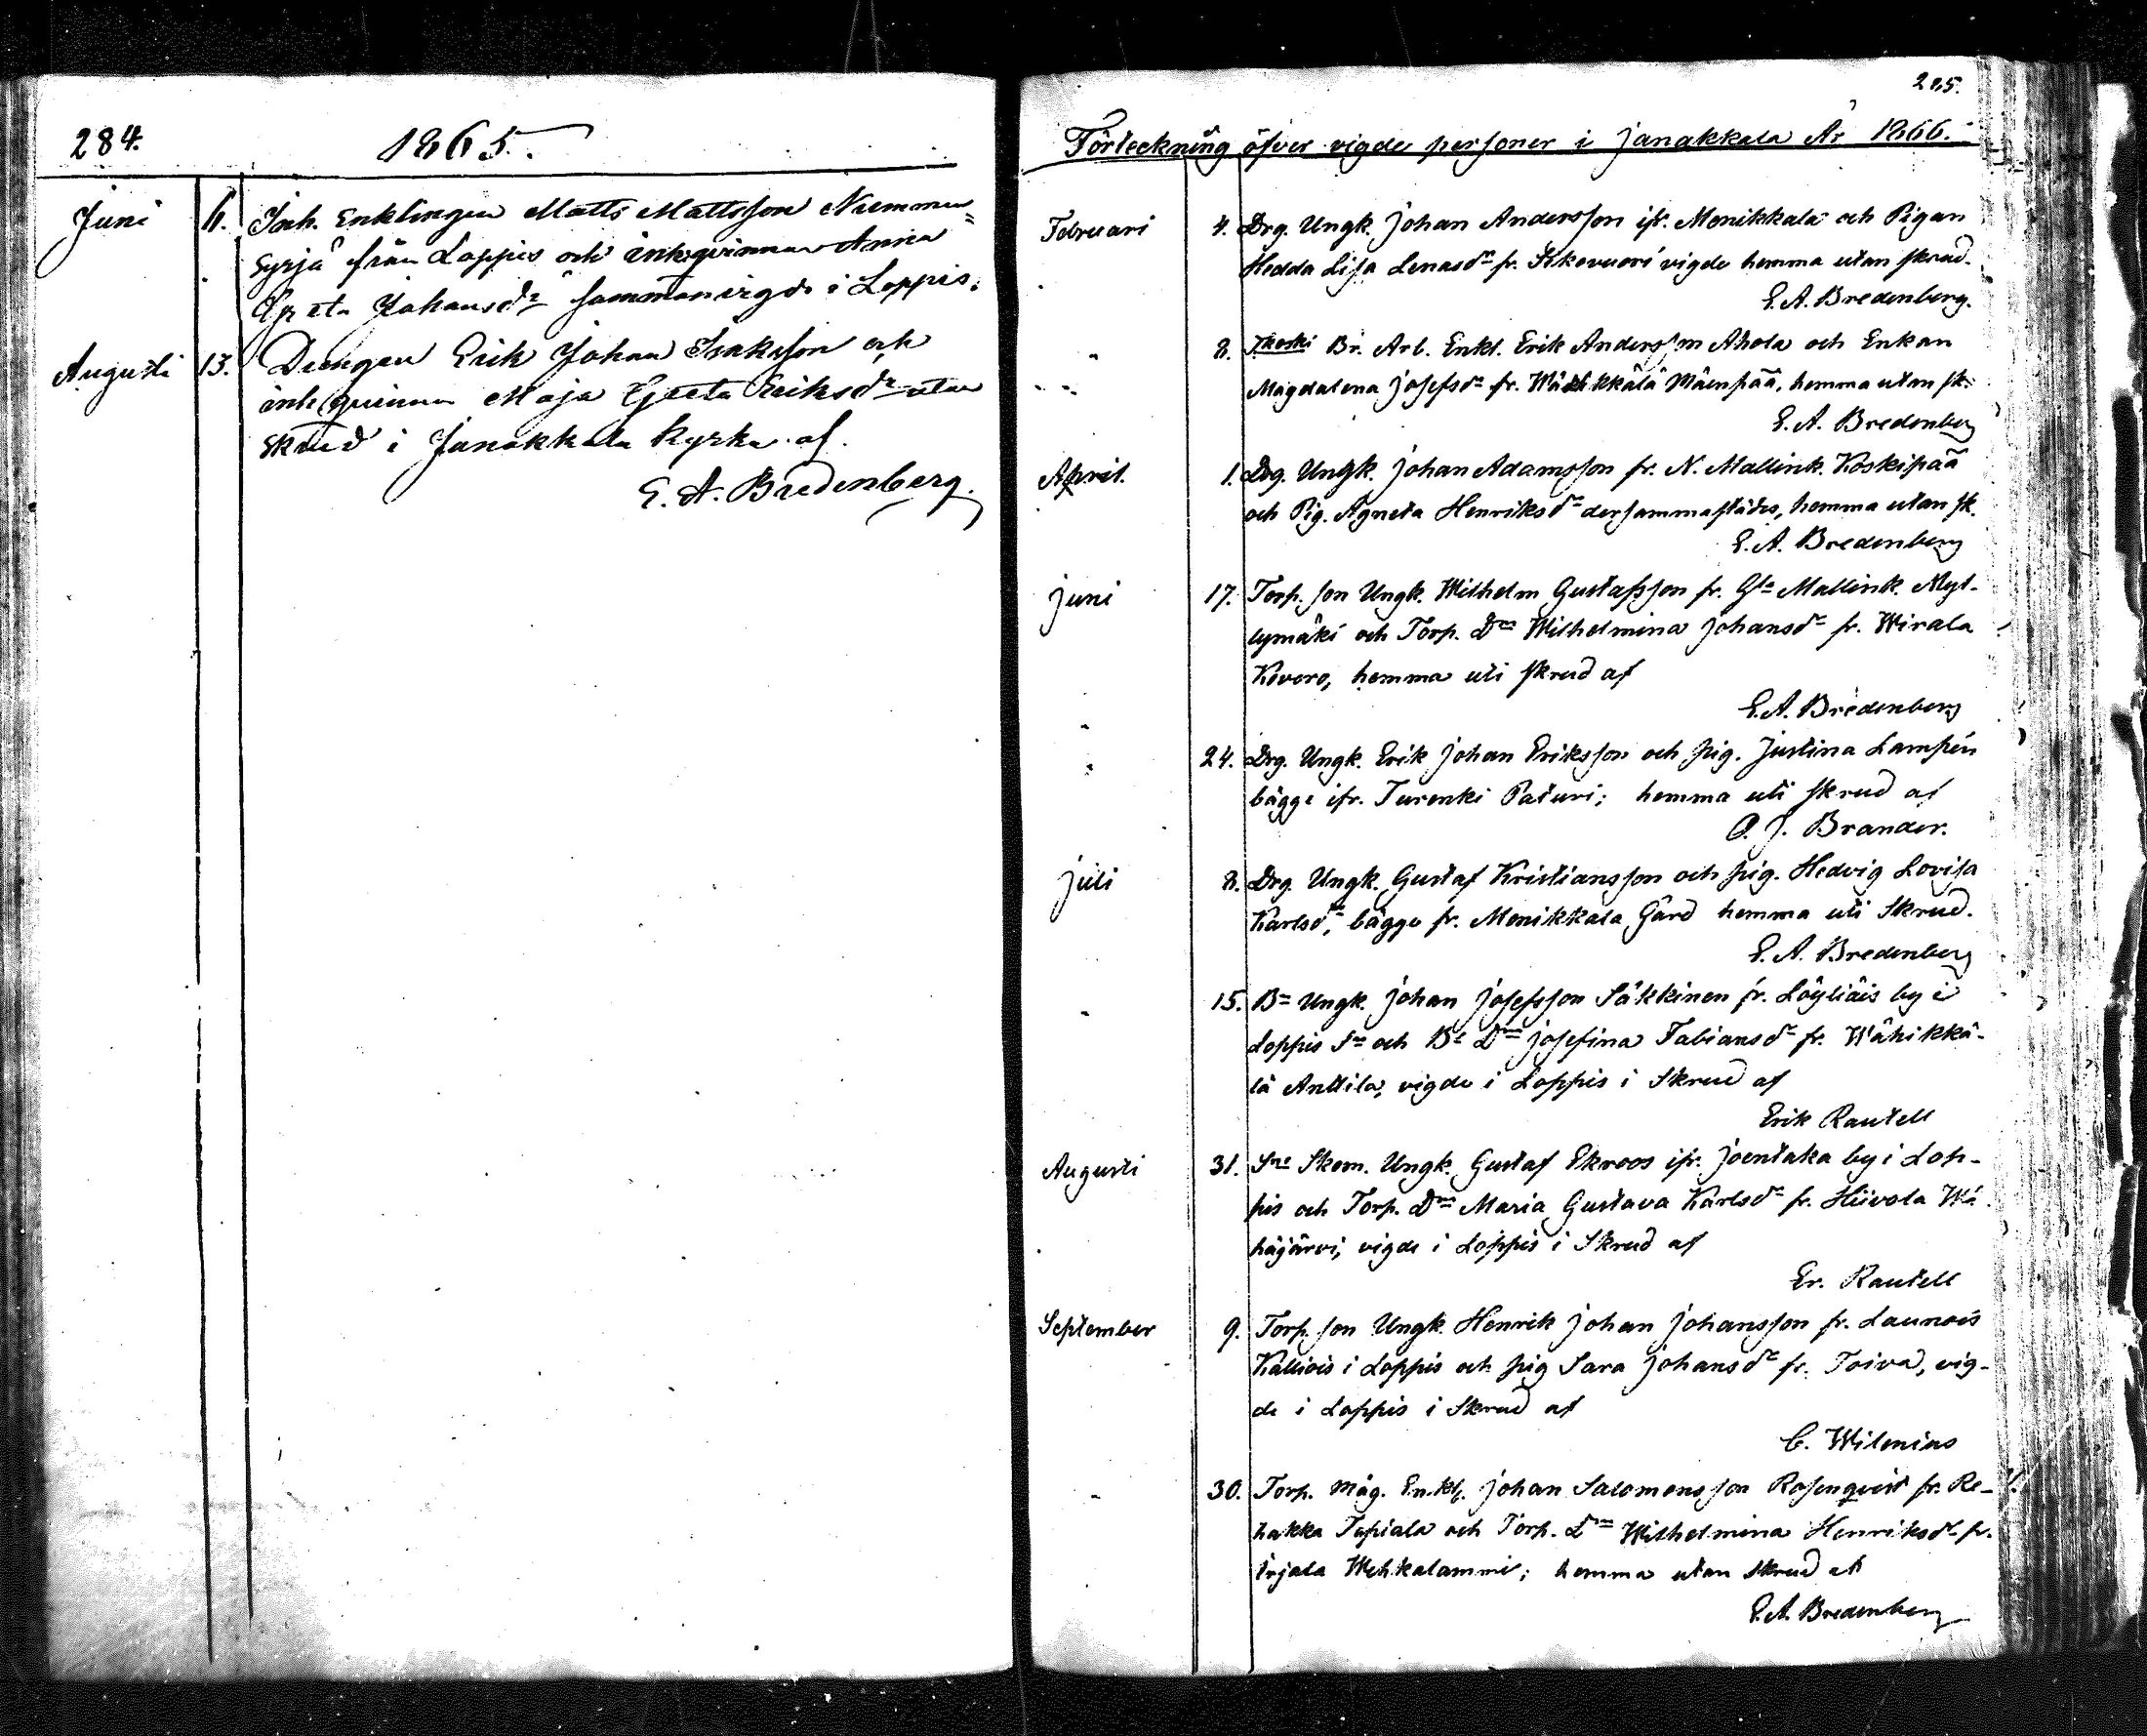 284.
1865.
Juni 11. Inh. Enklingen Matts Mattsson Niemmen=
syrjä från Loppis och inhqvinnan Anna
Greta Johansdr sammanvigde i Loppis.
Augusti 13. Drengen Erik Johan Isaksson och
inhqvinnan Maja Greta Eriksdr utan
skrud i Janakkala kyrka af
E. A. Bredenberg.
285.
Förteckning öfver vigde personer i Janakkala År 1866.
Februari 4. Drg. Ungk. Johan Andersson ifr. Monikkala och Pigan
Hedda Lisa Lenasdr fr. vigde hemma utan skrud.
E. A. Bredenberg.
" 8. Br. Arb. Enkl. Erik Andersson Ahola och Enkan
Magdalena Josefsdr fr. Wäähkkälä Mäenpää, hemma utan sk.
E. A. Bredenberg
April. 1. Drg. Ungk. Johan Adamsson fr. N. Mallink. Koskipää
och Pig. Agneta Henriksdr dersammastädes, hemma utan sk.
E. A. Bredenberg
Juni 17. Torp. son Ungk. Wilhelm Gustafsson fr. Gla Mallink. Myl-
lymäki och Torp. Dr Wilhelmina Johansdr fr. Wirala
Kovero, hemma uti skrud af
E. A. Bredenberg
" 24. Drg. Ungk. Erik Johan Eriksson och pig. Justina Lampén
bägge ifr. Turenki Paturi; hemma uti skrud af
O. J. Brander.
Juli 8. Drg. Ungk. Gustaf Kristiansson och pig. Hedvig Lovisa
Karlsdr, bägge fr. Monikkala Gård hemma uti Skrud.
E. A. Bredenberg
" 15. Bn Ungk. Johan Josefsson Säkkinen fr. Löyliäis by i
Loppis Sn och Be Dr Josefina Fabiansdr fr. Wähikkä-
lä Anttila, vigde i Loppis i Skrud af
Erik Rautell
Augusti 31. Skom. Ungk. Gustaf Ekroos ifr. Joentaka by i Lop-
pis och Torp. Dr Maria Gustava Karlsdr fr. Hiivola Wä-
häjärvi, vigde i Loppis i Skrud af
Er. Rautell
September 9. Torp. son Ungk. Henrik Johan Johansson fr. Launois
Kalliois i Loppis och pig Sara Johansdr fr. Toiva, vig-
de i Loppis i Skrud af
C. Wilenius
" 30. Torp. måg. Enkl. Johan Salomonsson Rosenqvist fr. Re-
hakka Tapiala och Torp. Dr Wilhelmina Henriksdr fr.
Irjala Wehkalammi; hemma utan skrud af
E. A. Bredenberg